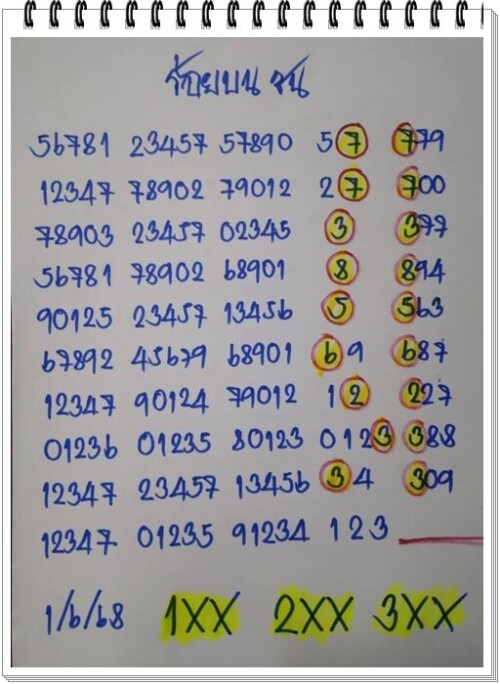 ร้อยบน ชน
56781 23457 57890 57 779
12347 78902 79012 27 700
78903 23457 02345 3 377
56781 78902 68901 8 894
90125 23457 13456 5 563
67892 45679 68901 69 687
12347 90124 79012 12 227
01236 01235 80123 0123 388
12347 23457 13456 34 309
12347 01235 91234 123
1/6/68 1XX 2XX 3XX